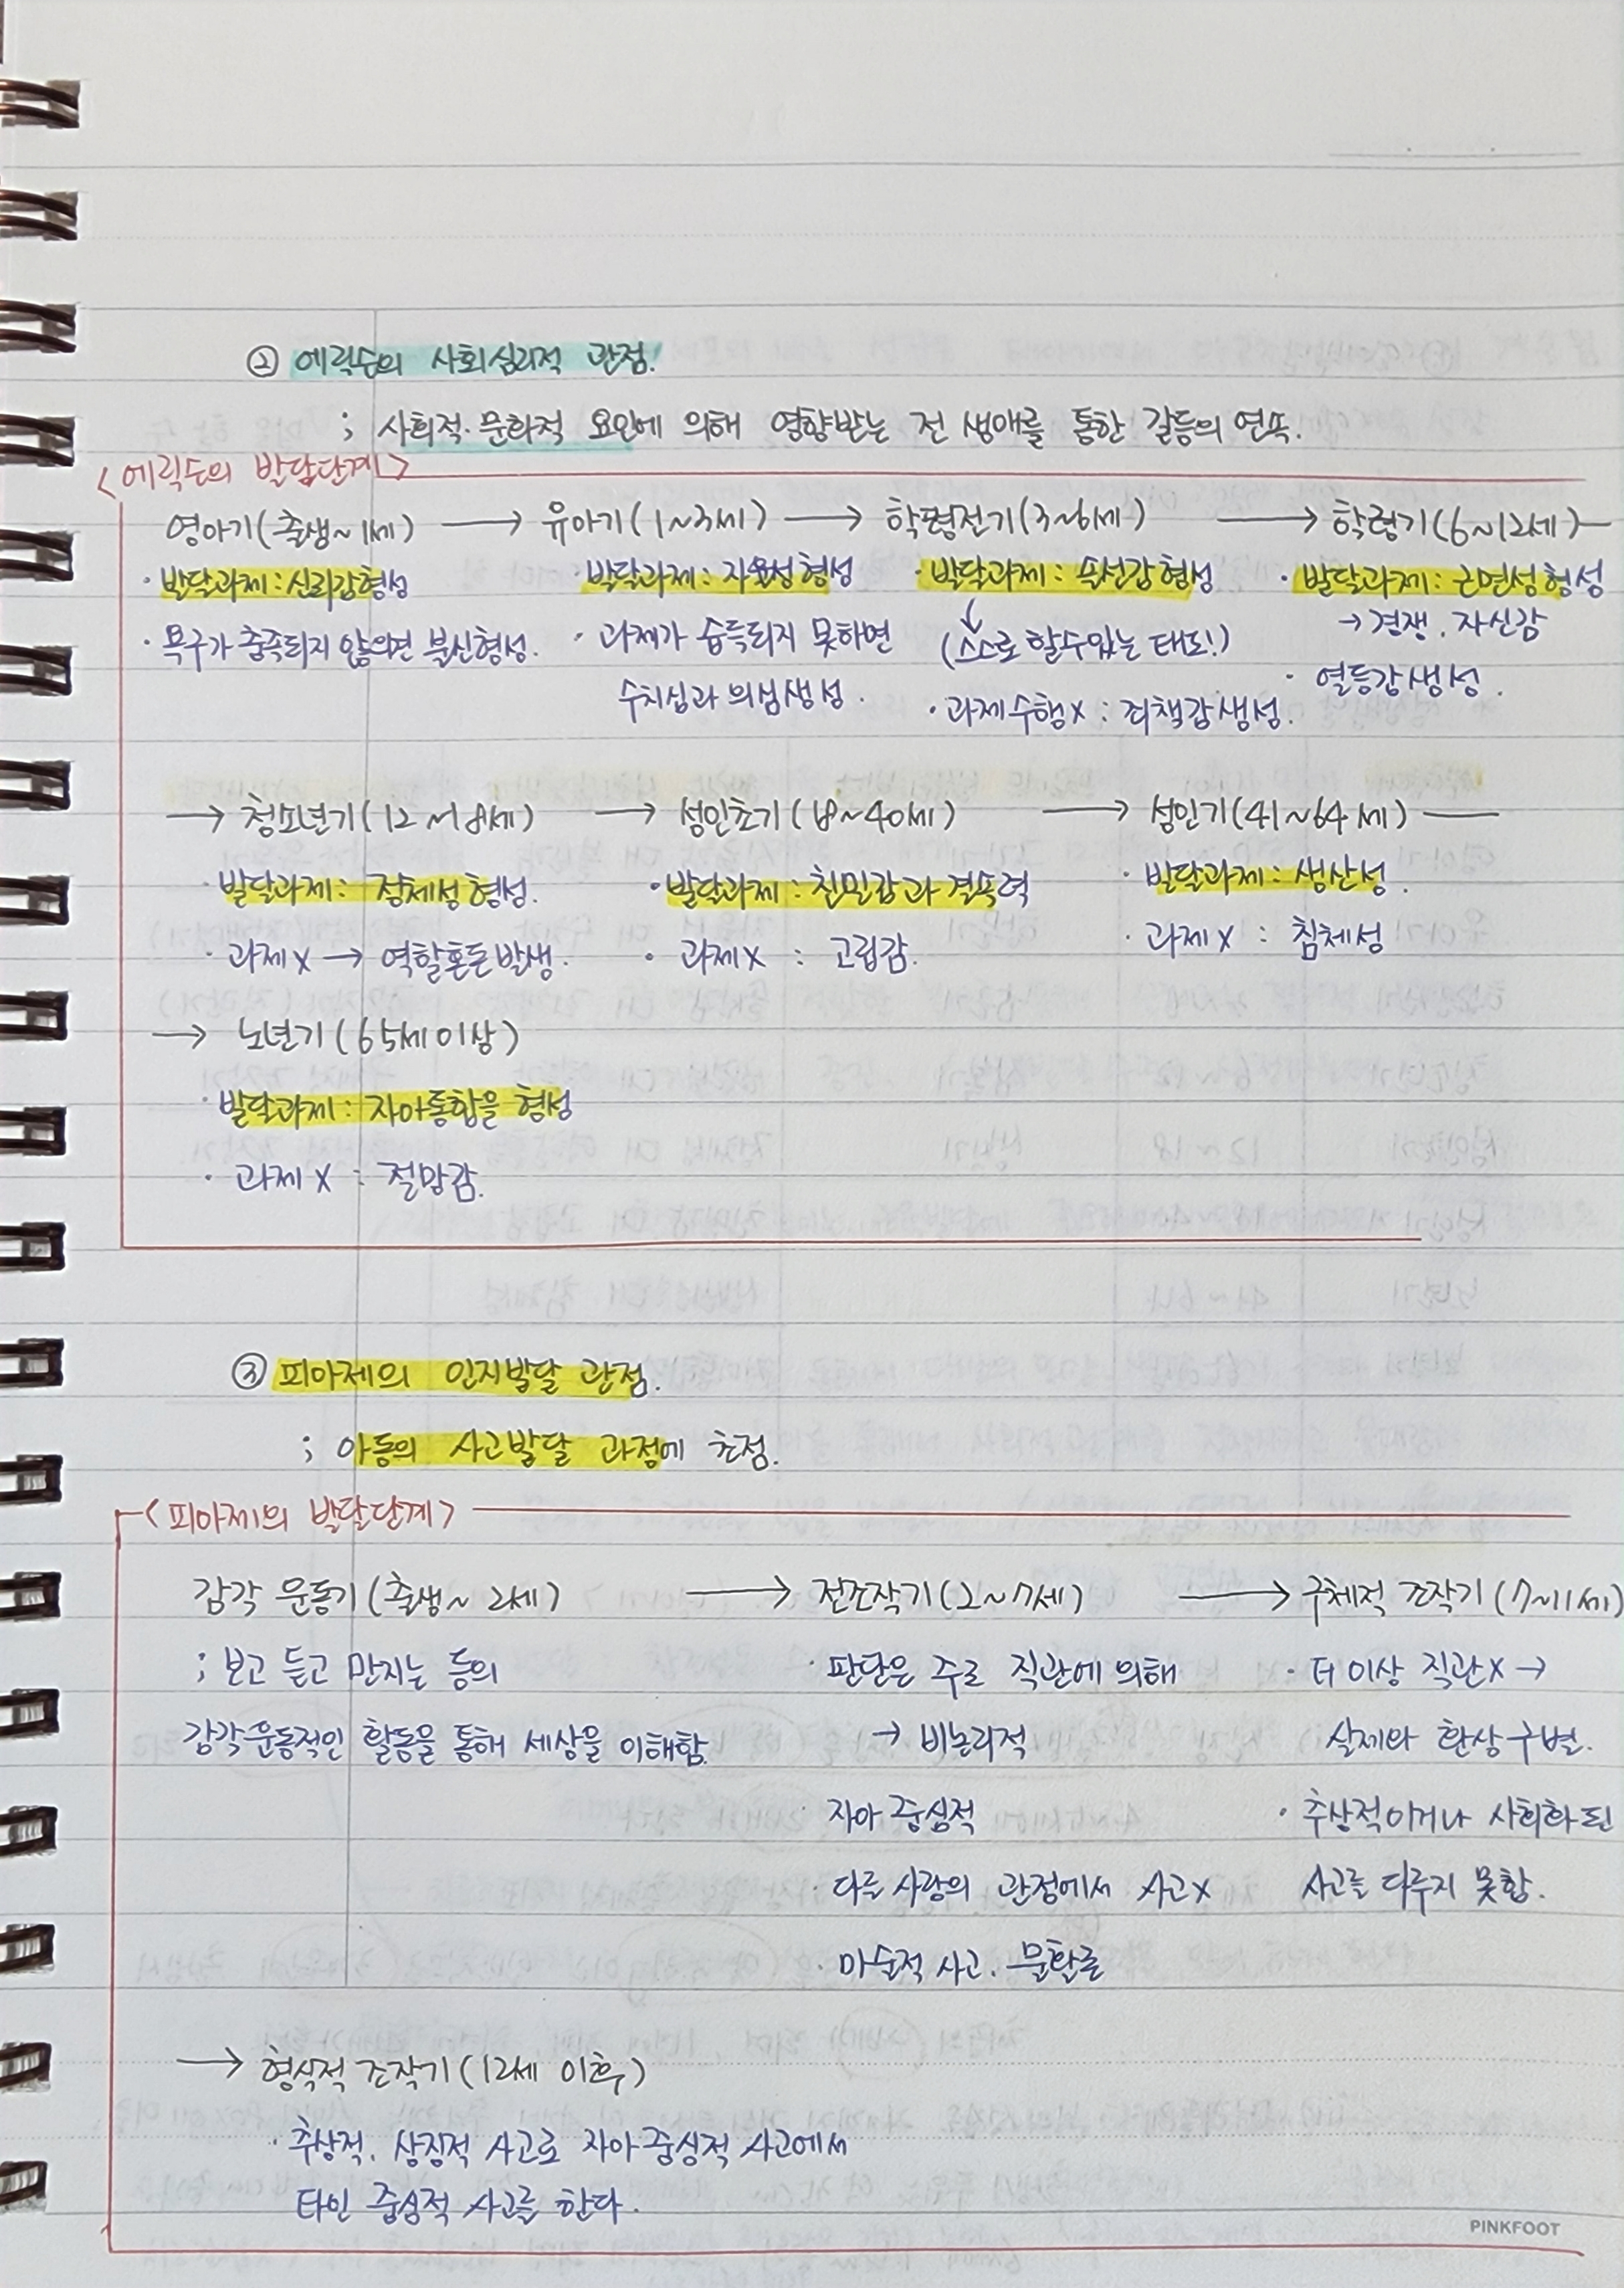 ② 에릭슨의 사회심리적 관점!
; 사회적·문화적 요인에 의해 영향받는 전 생애를 통한 갈등의 연속.
<에릭슨의 발달단계>
영아기(출생~1세) → 유아기(1~3세) → 학령전기(3~6세) → 학령기(6~12세)
· 발달과제:신뢰감형성 · 발달과제: 자율성형성 · 발달과제: 솔선감형성 · 발달과제: 근면성형성
· 욕구가 충족되지 않으면 불신형성. · 과제가 습득되지 못하면 (스스로 할수있는 태도!) → 경쟁, 자신감
수치심과 의심생성. · 과제수행x : 죄책감생성. · 열등감생성.
→ 청소년기(12~18세) → 성인초기(18~40세) → 성인기(41~64세)
· 발달과제: 정체성형성. · 발달과제: 친밀감과 결속력 · 발달과제: 생산성.
· 과제x → 역할혼돈발생. · 과제x : 고립감. · 과제x : 침체성
→ 노년기(65세이상)
· 발달과제: 자아통합을 형성
· 과제x : 절망감.
③ 피아제의 인지발달 관점.
; 아동의 사고발달 과정에 초점.
<피아제의 발달단계>
감각 운동기(출생~2세) → 전조작기(2~7세) → 구체적 조작기(7~11세)
; 보고 듣고 만지는 등의 · 판단은 주로 직관에 의해 · 더 이상 직관x →
감각운동적인 활동을 통해 세상을 이해함. → 비논리적 실제와 환상구별.
· 자아 중심적 · 추상적이거나 사회화된
· 다른 사람의 관점에서 사고x 사고를 다루지 못함.
· 마술적 사고, 물활론
→ 형식적 조작기(12세 이후)
· 추상적, 상징적 사고로 자아중심적 사고에서
타인 중심적 사고를 한다.
PINKFOOT